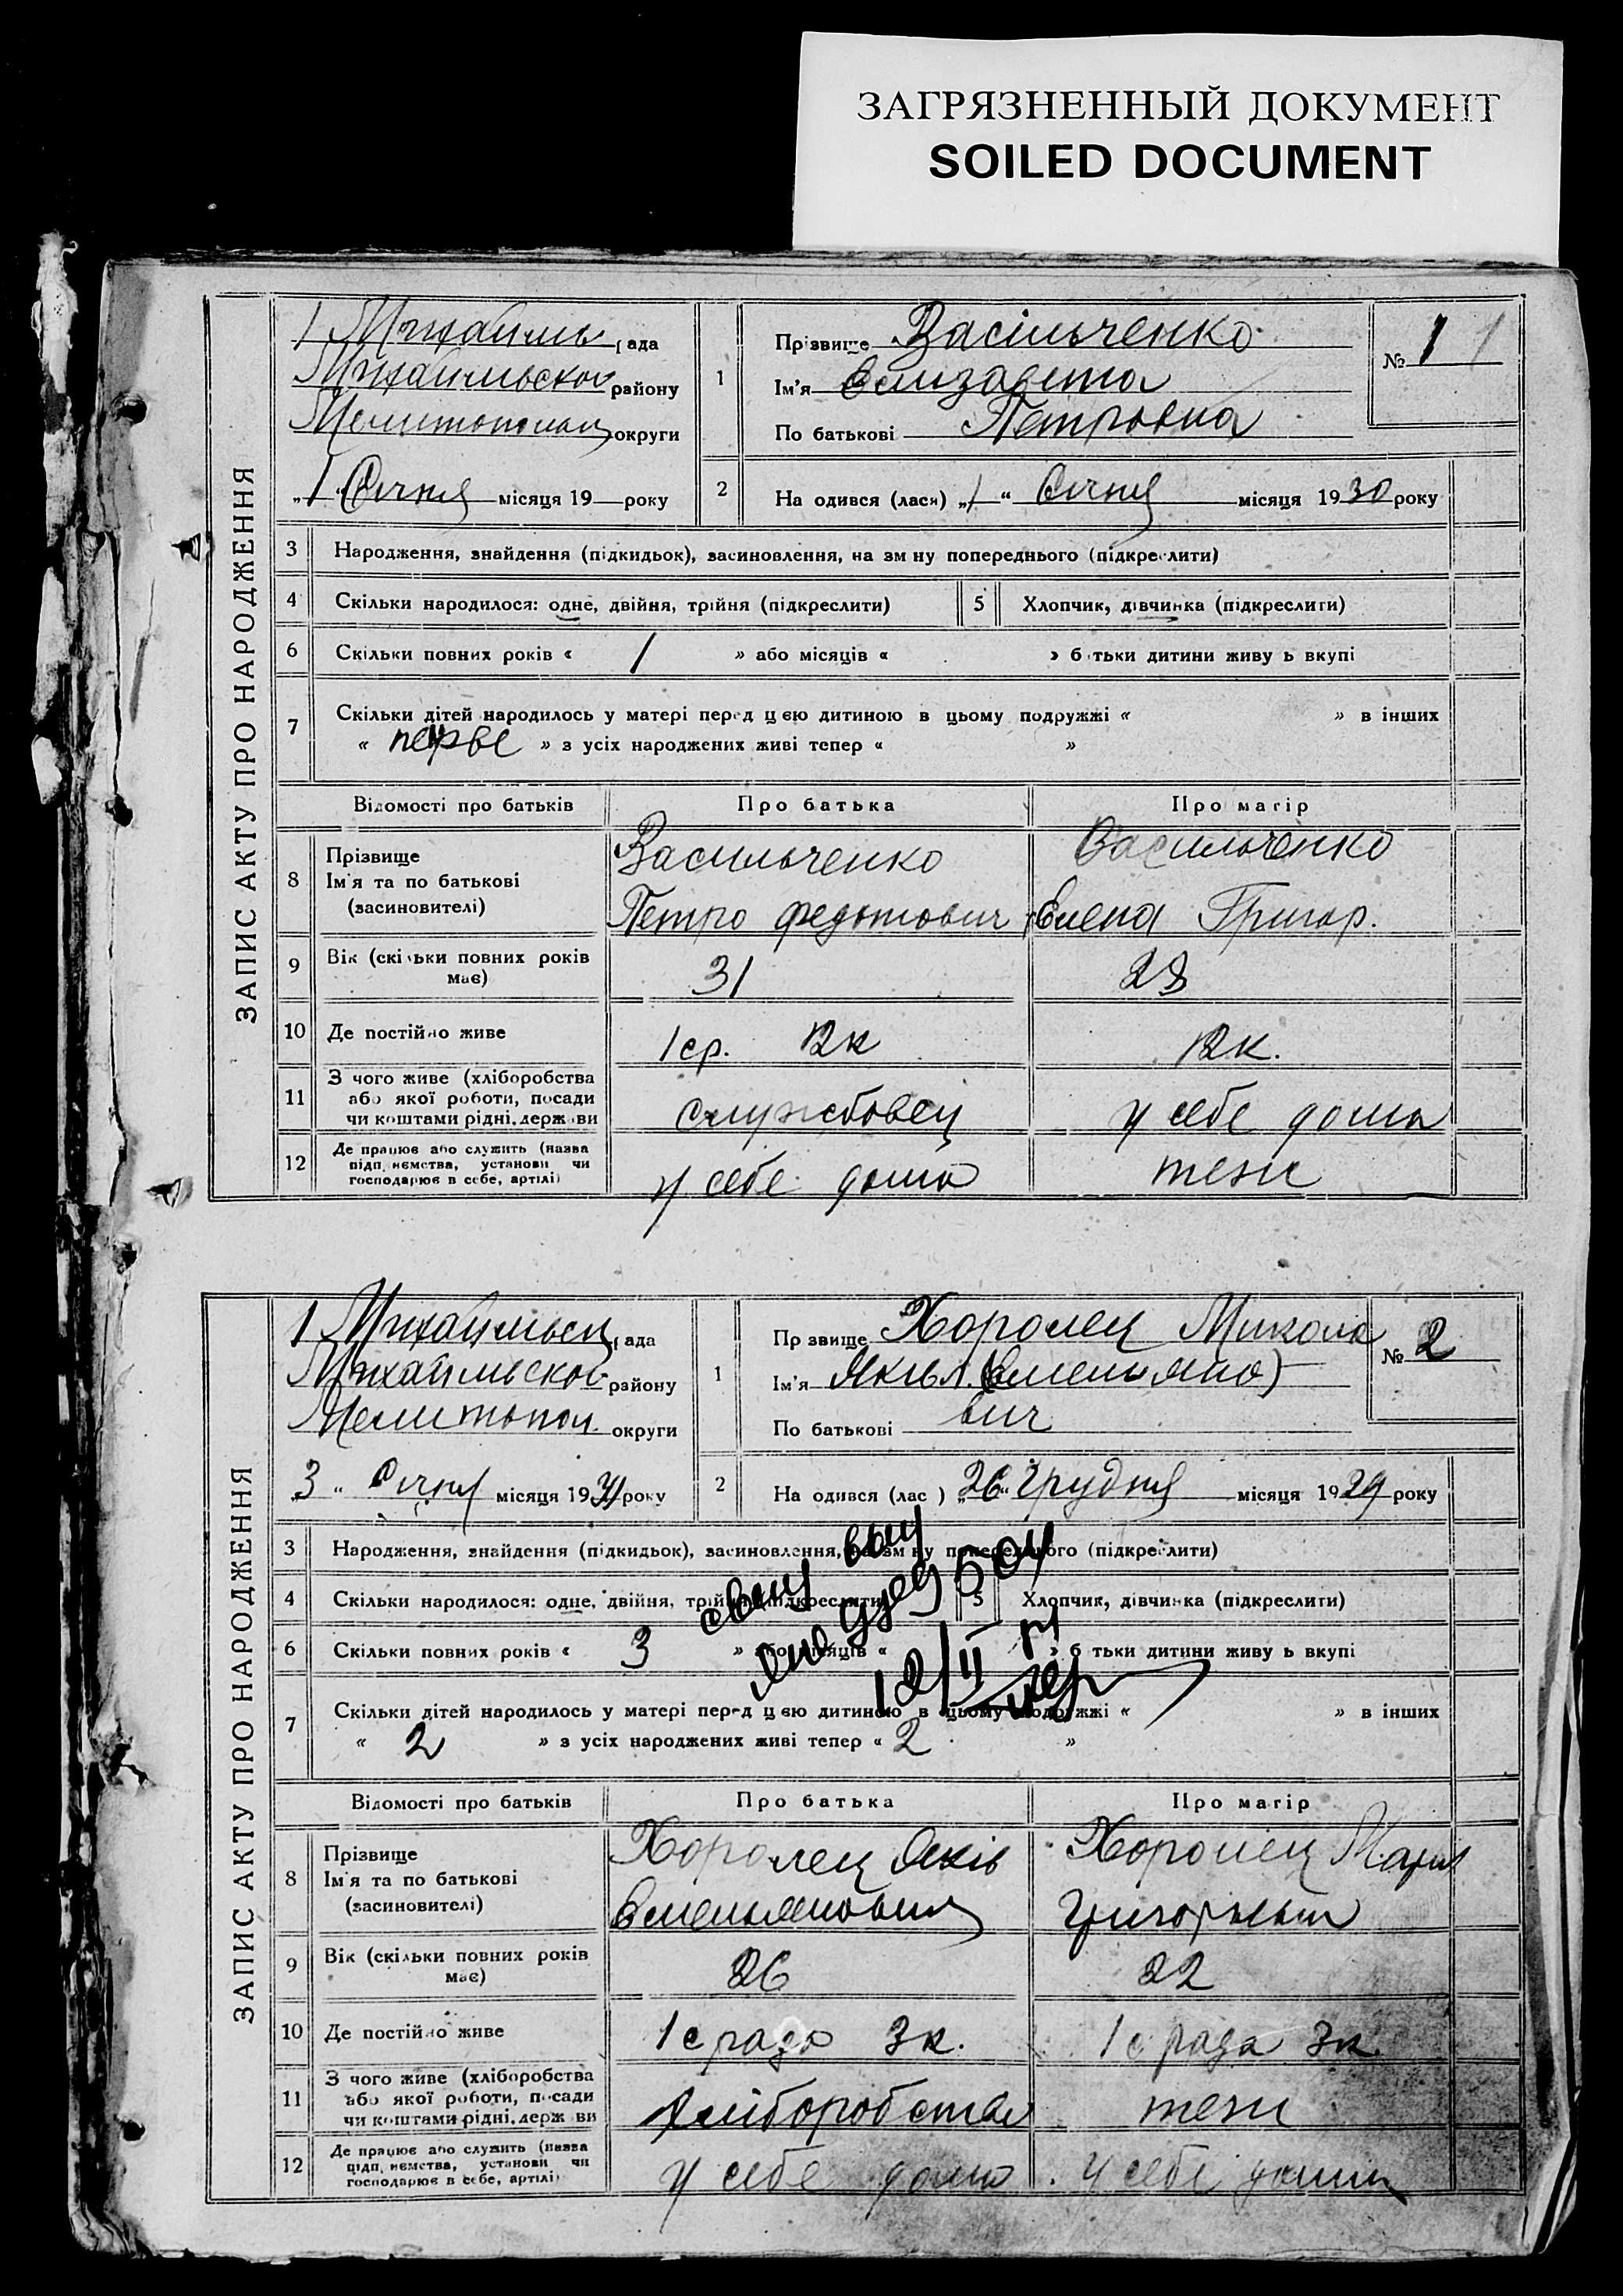 ЗАГРЯЗНЕННЫЙ ДОКУМЕНТ
SOILED DOCUMENT
ЗАПИС АКТУ ПРО НАРОДЖЕННЯ
1 Михайлів рада
Михайлівської району
Мелитопольськ округи
„1“ Січня місяця 19 року
1
Прізвище Васільченко
Ім'я Єлизавета
По батькові Петровна
№ 1 1
2
На одився (лася) „1“ Січня місяця 1930 року
3 Народження, знайдення (підкидьок), засиновлення, на зм ну попереднього (підкреслити)
4 Скільки народилося: одне, двійня, трійня (підкреслити) 5 Хлопчик, дівчинка (підкреслити)
6 Скільки повних років « 1 » або місяців « » б тьки дитини живу ь вкупі
7 Скільки дітей народилось у матері перед цією дитиною в цьому подружжі « » в інших
« перве » з усіх народжених живі тепер « »
Відомості про батьків Про батька Про матір
8 Прізвище
Ім'я та по батькові
(засиновителі)
Васильченко
Петро Федотович
Васильченко
Єлена Григор.
9 Вік (скільки повних років має) 31 28
10 Де постійно живе 1 ср. 12к 12к.
11 З чого живе (хліборобства
або якої роботи, посади
чи коштами рідні, держ ви
службовец у себе дома
12 Де працює або служить (назва
підп иємства, установи чи
господарює в себе, артілі)
у себе дома тежи
ЗАПИС АКТУ ПРО НАРОДЖЕННЯ
1 Михайлівськ рада
Михайлівської району
Мелитопол. округи
„3“ Січня місяця 19 року
1
Пр звище Хоролец Микола
Ім'я
По батькові вич
№ 2
2
На одився (лас ) „26“ Грудня місяця 1929 року
3 Народження, знайдення (підкидьок), засиновлення, на зм ну попереднього (підкреслити)
4 Скільки народилося: одне, двійня, трійня (підкреслити) 5 Хлопчик, дівчинка (підкреслити)
6 Скільки повних років « 3 » або місяців « » б тьки дитини живу ь вкупі
12/II
7 Скільки дітей народилось у матері перед цією дитиною в цьому подружжі « » в інших
« 2 » з усіх народжених живі тепер « 2 »
Відомості про батьків Про батька Про матір
8 Прізвище
Ім'я та по батькові
(засиновителі)
Хоролец Яків
Хоролец Мария
9 Вік (скільки повних років має) 26 22
10 Де постійно живе 1 с рада 3к. 1 с рада 3к.
11 З чого живе (хліборобства
або якої роботи, посади
чи коштами рідні, держ ви
хліборобства тежи
12 Де працює або служить (назва
підп иємства, установи чи
господарює в себе, артілі)
у себе дома у себе дома